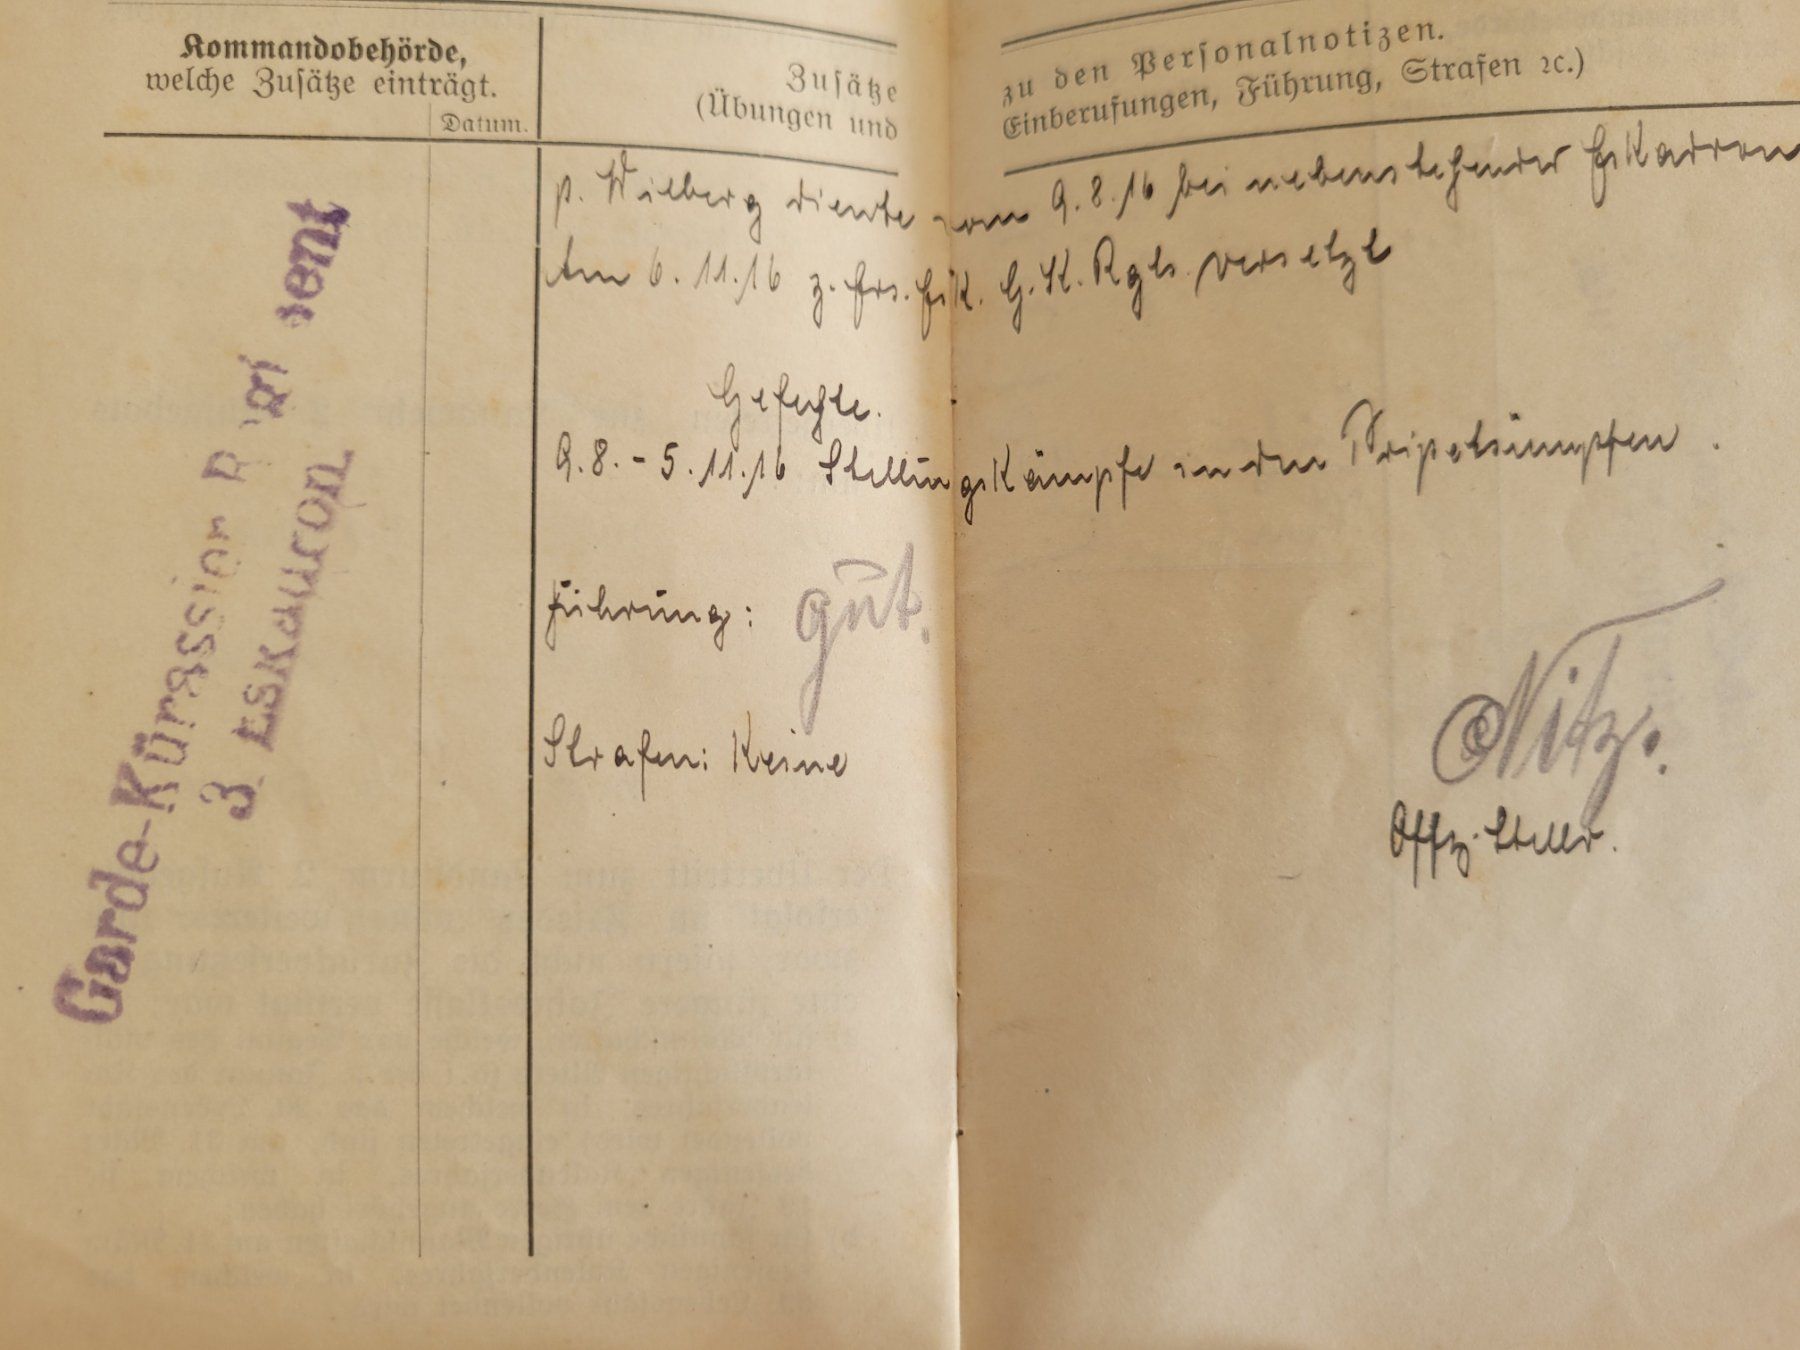 Kommandobehörde,
welche Zusätze einträgt.
Datum.
Zusätze
(Übungen und
zu den Personalnotizen.
Einberufungen, Führung, Strafen ꝛc.)
Garde-Kürassier
3 Eskadron.
p. Wilberg diente vom 9.8.16 bei nebenstehender Eskadron
Am 6.11.16 z. Ers. Esk. G. K. Rgts. versetzt
Gefechte.
9.8. - 5.11.16 Stellungskämpfe in den Pripetsümpfen.
Führung: gut.
Strafen: Keine
Nitz.
Offz. Stellv.